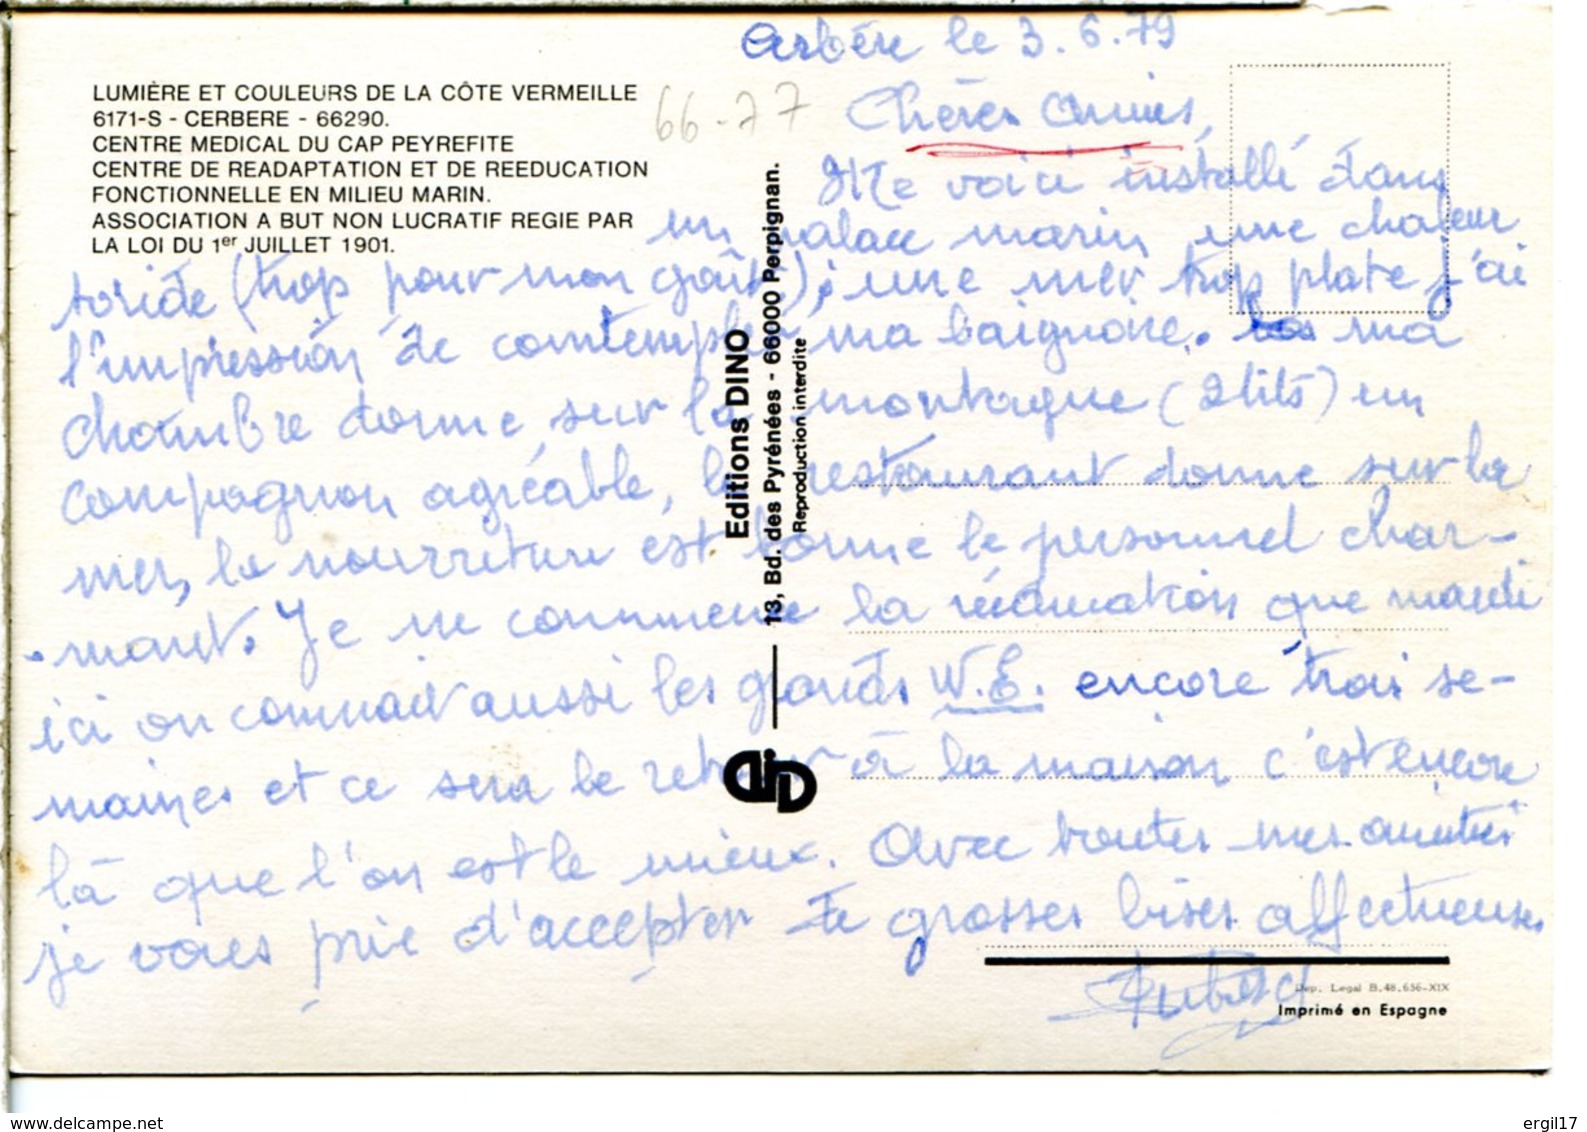 LUMIÈRE ET COULEURS DE LA CÔTE VERMEILLE
6171-S - CERBERE - 66290.
CENTRE MEDICAL DU CAP PEYREFITE
CENTRE DE READAPTATION ET DE REEDUCATION
FONCTIONNELLE EN MILIEU MARIN.
ASSOCIATION A BUT NON LUCRATIF REGIE PAR
LA LOI DU 1er JUILLET 1901.
66-77
le 3.6.79
Chères Amies,
Me voici installé dans
un palace marin, une chaleur
toride (trop pour mon goût) ; une mer trop plate j'ai
l'impression de comtempler ma baignoire. ma
chambre donne sur la montagne (2 lits) un
compagnon agréable, le restaurant donne sur la
mer, la nourriture est bonne le personnel char-
mant. Je ne commence la que mardi
ici on connait aussi les grands W.E. encore trois se-
maines et ce sera le retour à la maison c'est encore
là que l'on est le mieux. Avec toutes mes amitiés
je vous prie d'accepter de grosses bises affectueuses
Editions DINO
13, Bd. des Pyrénées - 66000 Perpignan.
Reproduction interdite
Dep. Legal B.48.656-XIX
Imprimé en Espagne
www.delcampe.net
ergil17